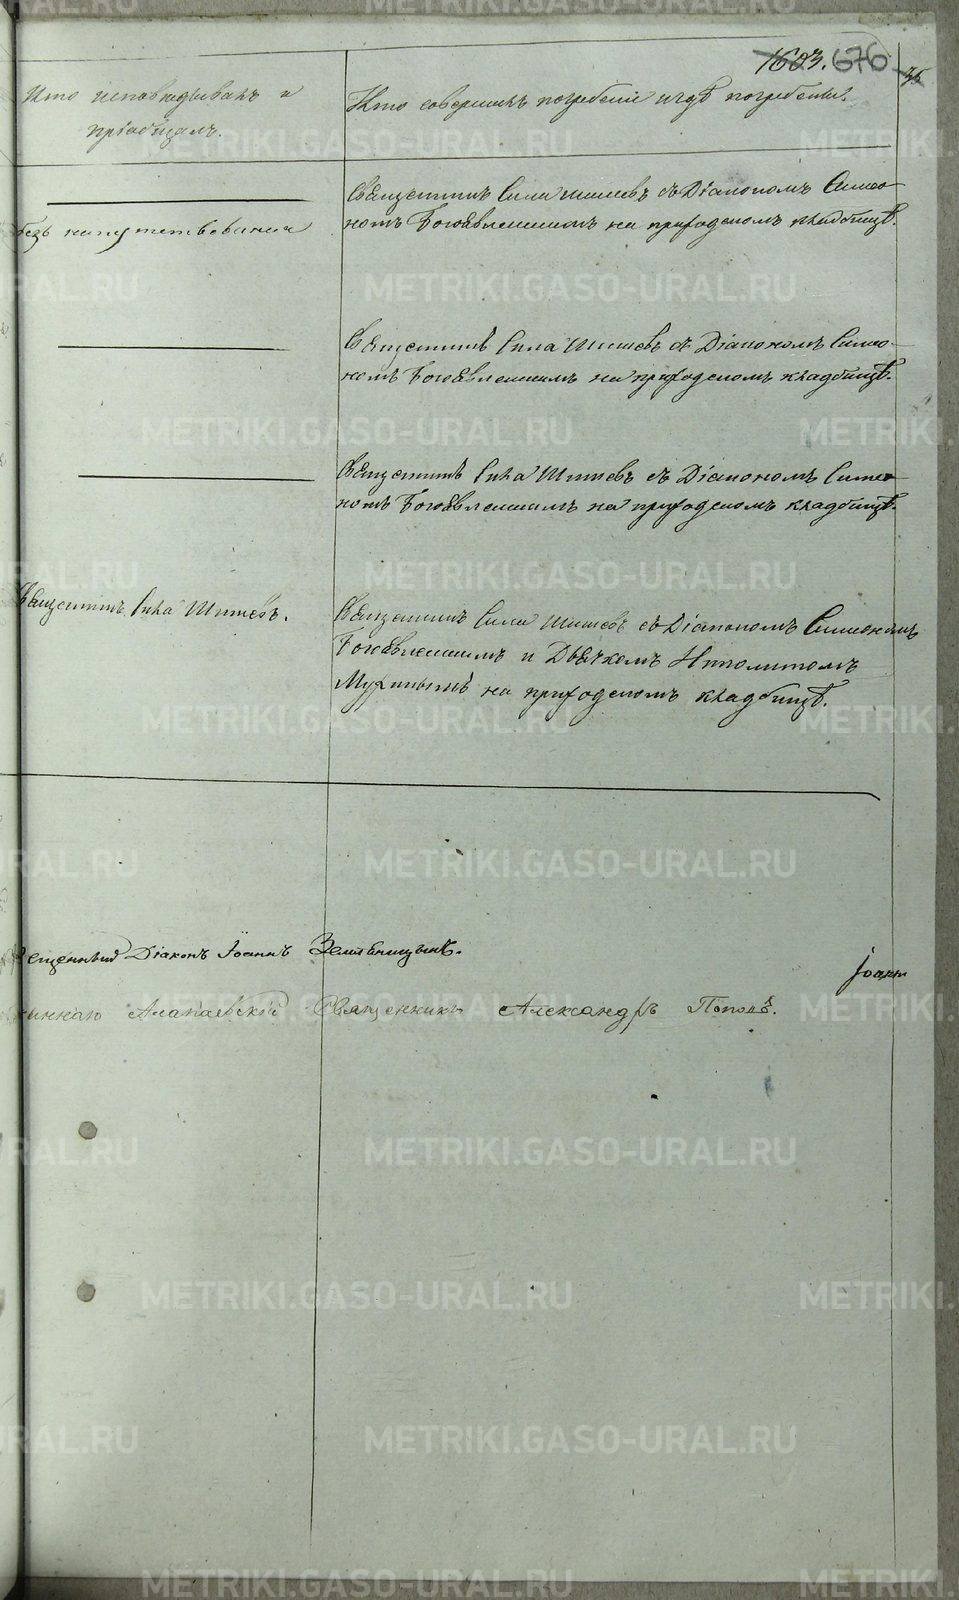 1623. 676
Кто исповѣдывалъ и
пріобщалъ.
Кто совершалъ погребеніе и гдѣ погребены.
Священникъ Сила Шишевъ съ Діакономъ Симео-
номъ Богоявленскимъ на приходскомъ кладбищѣ.
безъ напутствованія
Священникъ Сила Шишевъ съ Діакономъ Симео-
номъ Богоявленскимъ на приходскомъ кладбищѣ.
Священникъ Сила Шишевъ съ Діакономъ Симео-
номъ Богоявленскимъ на приходскомъ кладбищѣ.
Священникъ Сила Шишевъ.
Священникъ Сила Шишевъ съ Діакономъ Симеономъ
Богоявленскимъ и Дьячкомъ Ипполитомъ
на приходскомъ кладбищѣ.
Діаконъ Іоаннъ Земляницынъ.
Іоанн
Алапаевскій Священникъ Александръ Поповъ.
METRIKI.GASO-URAL.RU